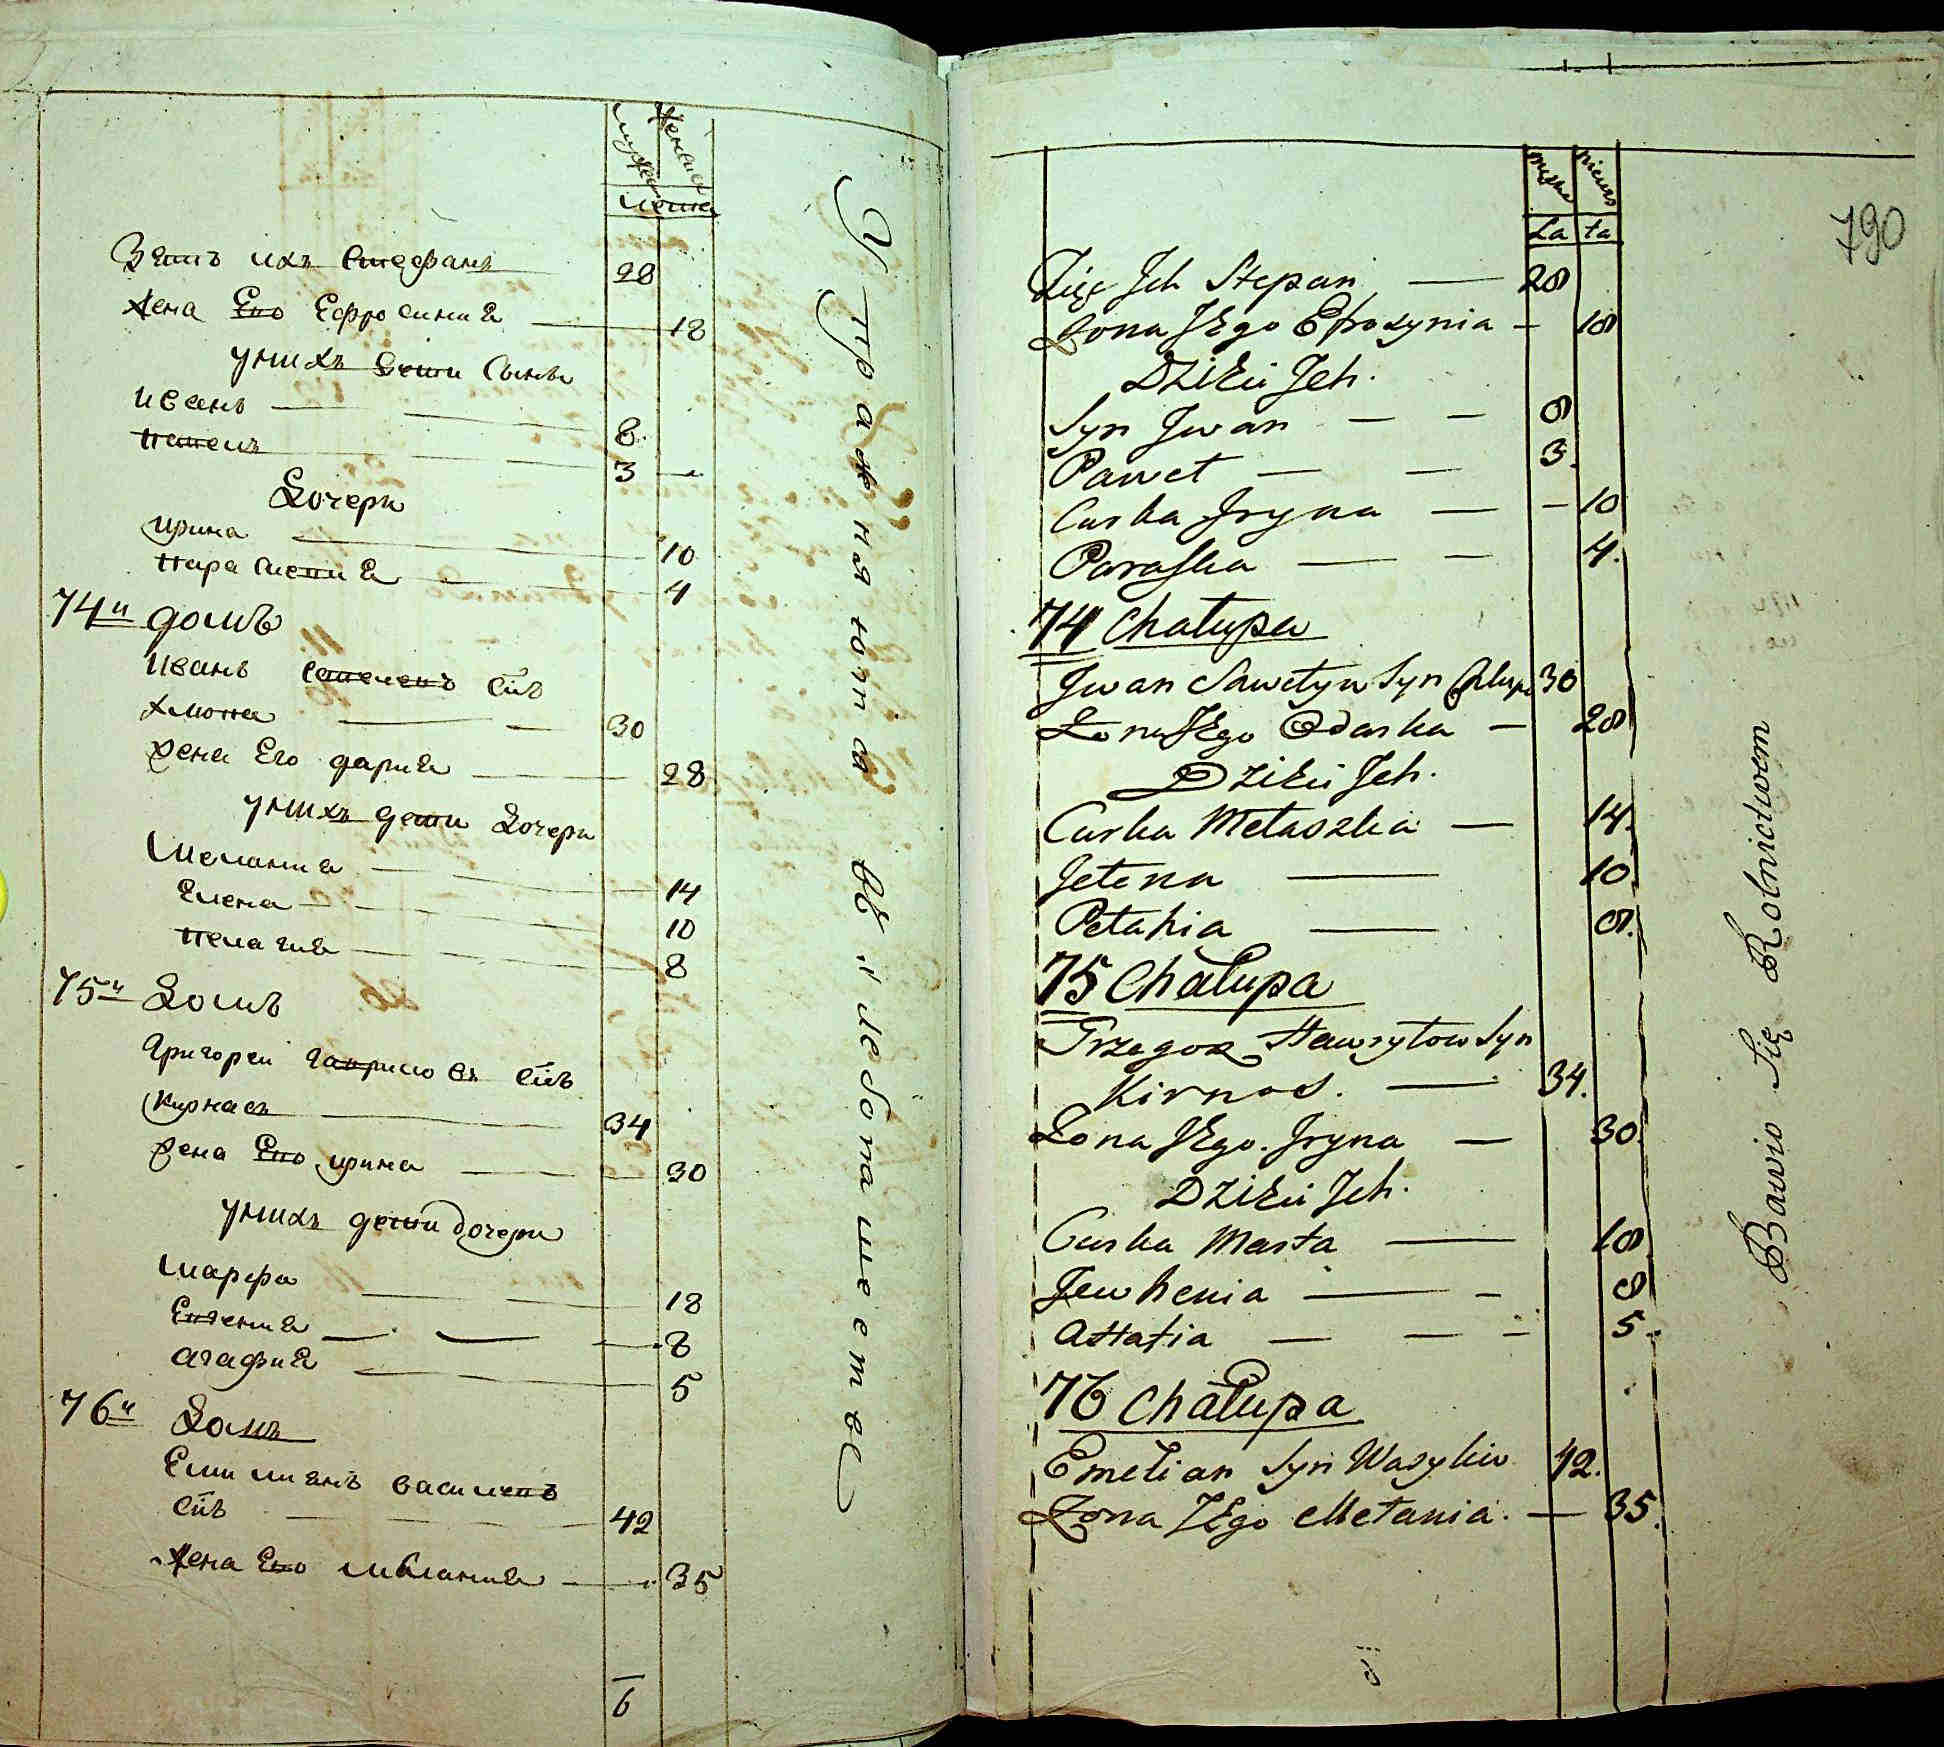 мужеска женска
лета
Зять ихъ Стефанъ 28
жена Его Ефросиния 18
уних дети Сыны
иванъ 8
павелъ 3
Дочери
ирина 10
параскевия 4
74й домъ
иванъ савелевъ снъ
30
жена Его дария 28
унихъ дети Дочери
мелания 14
Елена 10
пелагия 8
75й Домъ
григореи гаврилов снъ
кирнасъ 34
жена Его ирина 30
унихъ дети дочери
марфа 18
Евгения 8
агафия 5
76й Домъ
Емилианъ василевъ
снъ 42
жена Его мелания 35
6
Упражняются въ хлебопашестве
790
męzka niewes
La ta
Zięć Jch Stepan 28
Żona JEgo Efrozynia 18
DziEci Jch.
Syn Jwan 8
Paweł 3.
Curka Jryna 10
Paraska 4.
74 Chałupa
Jwan Saweływ Syn 30
Żona JEgo Odarka 28
DziEci Jch.
Curka Mełaszka 14.
Jełena 10.
Pełahia 8.
75 Chałupa
Grzegoz Hawryłow Syn
Kirnos. 34.
Żona JEgo Jryna 30.
DziEci Jch.
Curka Marta 18
Jewhenia 8
Ahafia 5.
76 Chałupa
Emelian Syn Wasyliw 42.
Żona JEgo Mełania. 35.
Bawio Się Rolnictwem